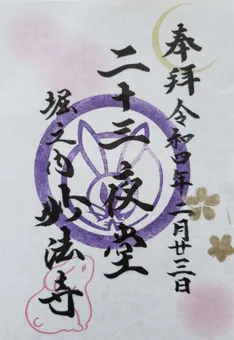 奉拝 令和四年二月廿三日
二十三夜堂
堀之内 妙法寺